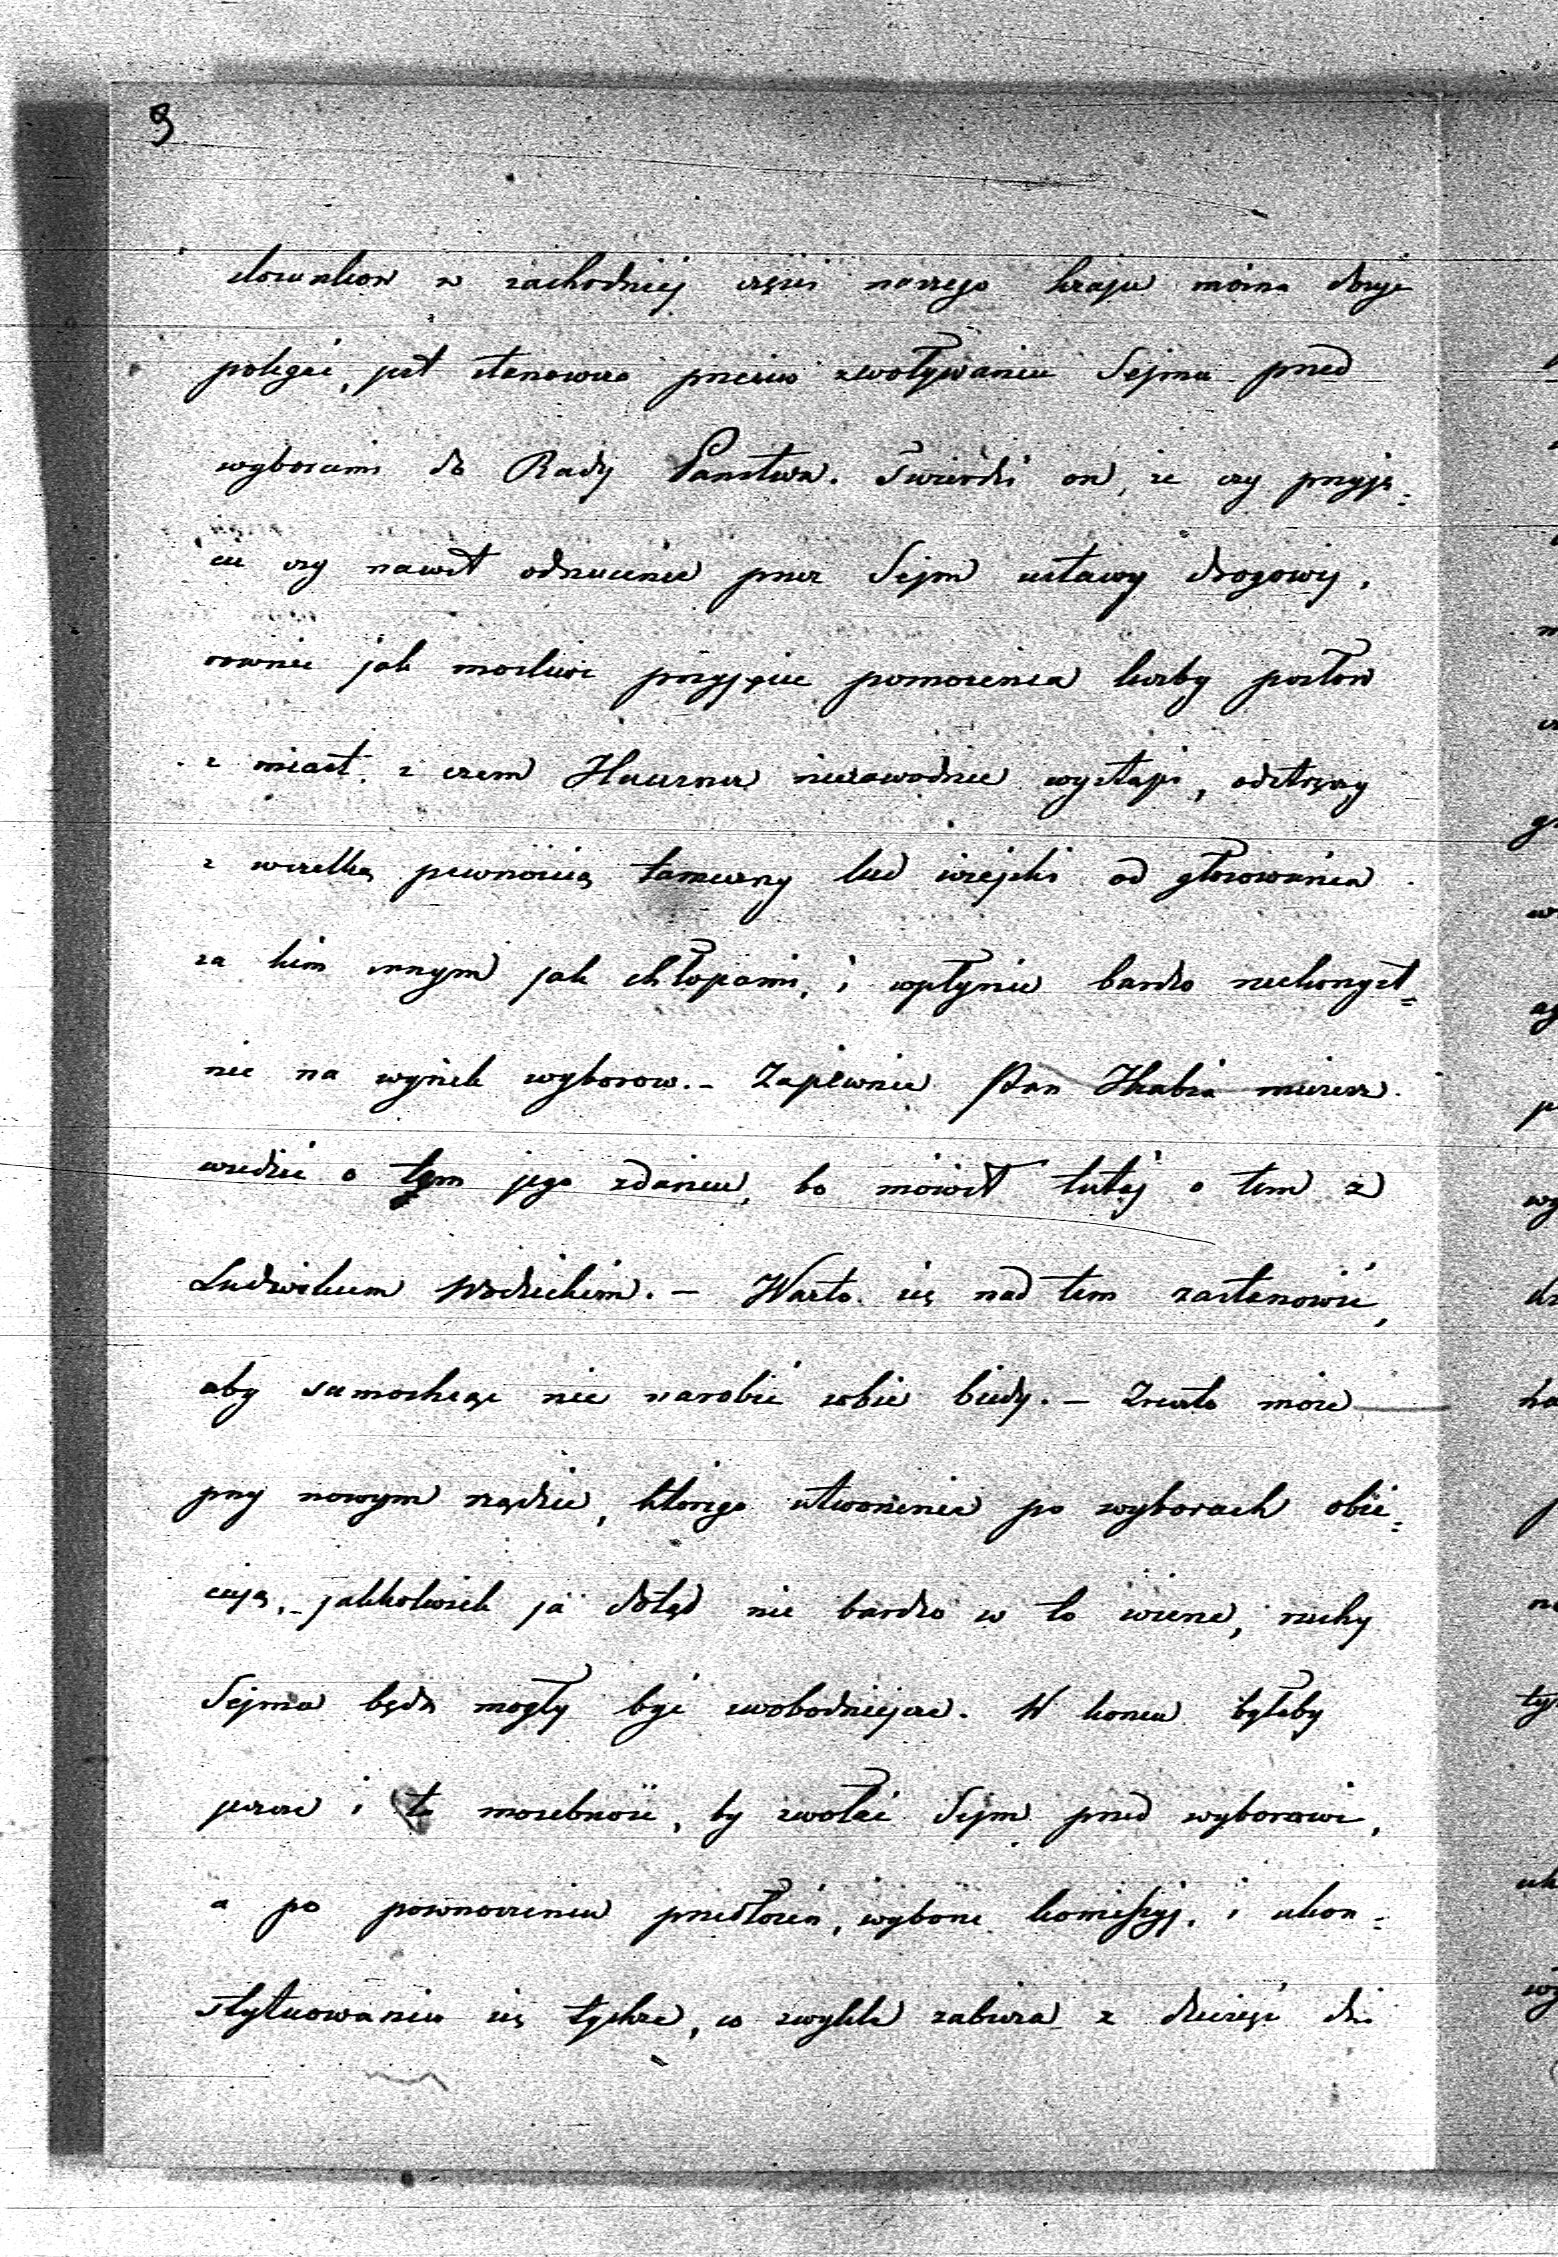 9
stosunków w zachodniéj części naszego kraju można
polegać, jest stanowczo przeciw zwoływaniu Sejmu przed
wyborami do Rady Państwa. Twierdzi on, że czy przyję=
cie czy nawet odrzucenie przez Sejm ustawy drogowej,
rownie jak możliwe przyjęcie pomnożenia liczby posłów
z miast, z czem Hausner niezawodnie wystąpi, odstręczy
z wszelką pewnością tameczny lud wiejski od głosowania
za kim innym jak chłopami, i wpłynie bardzo niekorzyst=
nie na wynik wyborow. – Zapewnie Pan Hrabia musisz
wiedzieć o tem jego zdaniu, bo mówił tutaj o tem z
Ludwikiem Wodzickim. – Warto się nad tem zastanowić,
aby samochcąc nie narobić sobie biedy. – Zresztą może
przy nowym rządzie, którego utworzenie po wyborach obie=
cują, – jakkolwiek ja dotąd nie bardzo w to wierzę, ruchy
Sejmu będą mogły być swobodniejsze. W końcu byłaby
jeszcze i ta możebność, by zwołać Sejm przed wyborami,
a po pownoszeniu przedłożeń, wyborze komissyj, i ukon=
stytuowaniu się tychże, co zwykle zabiera z dziesięć dni